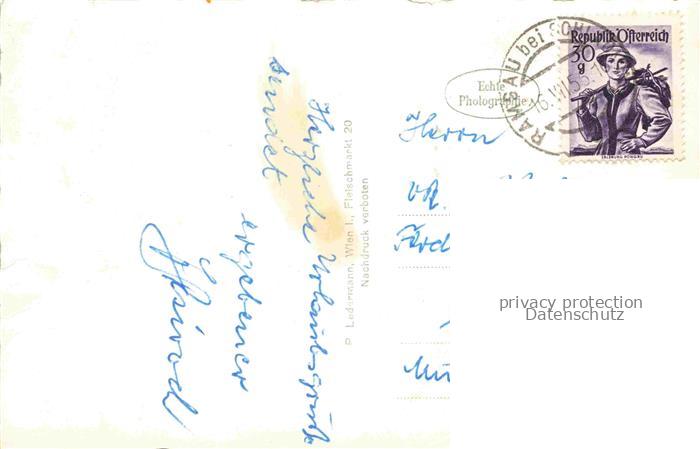 Herzliche Urlaubsgrüße
sendet
ergebener
P. Ledermann, Wien I., Fleischmarkt 20
Nachdruck verboten
Echte
Photographie
RAMSAU bei SCH
Republik Österreich
30
g
SALZBURG PONGAU
Herrn
Ferd
privacy protection
Datenschutz